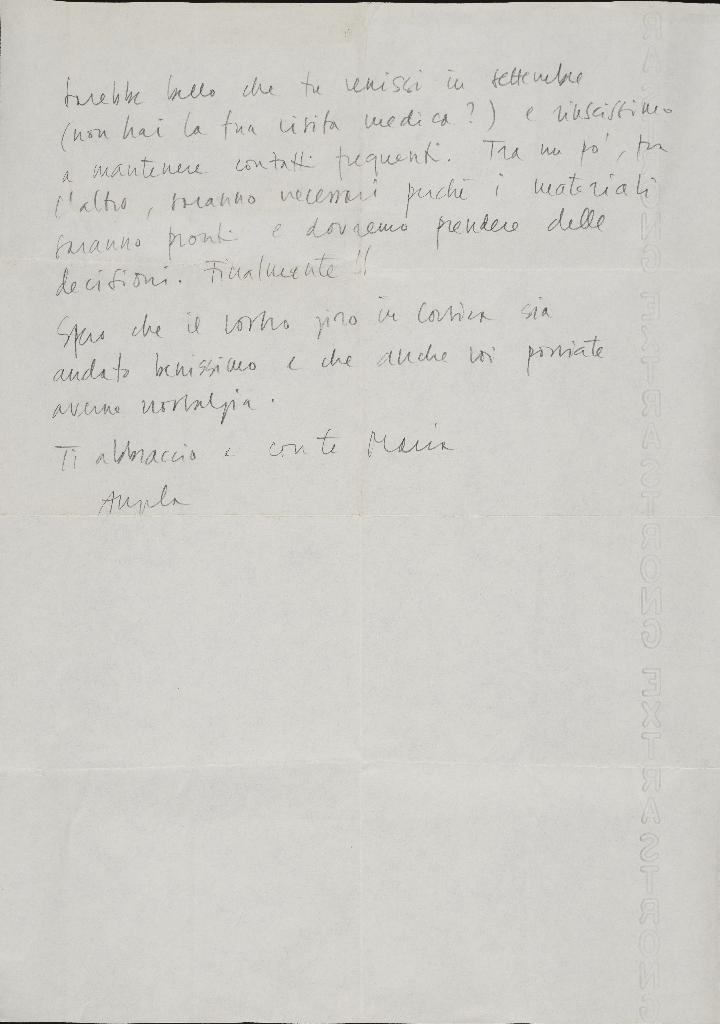 Sarebbe bello che tu venissi in settembre
(non hai la tua visita medica?) e riuscissimo
a mantenere contatti frequenti. Tra un po', tra
l'altro, saranno necessari perché i materiali
saranno pronti e dovremo prendere delle
decisioni. Finalmente!!
Spero che il vostro giro in Corsica sia
andato benissimo e che anche voi possiate
averne nostalgia.
Ti abbraccio e con te Maria
EXTRA STRONG EXTRA STRONG